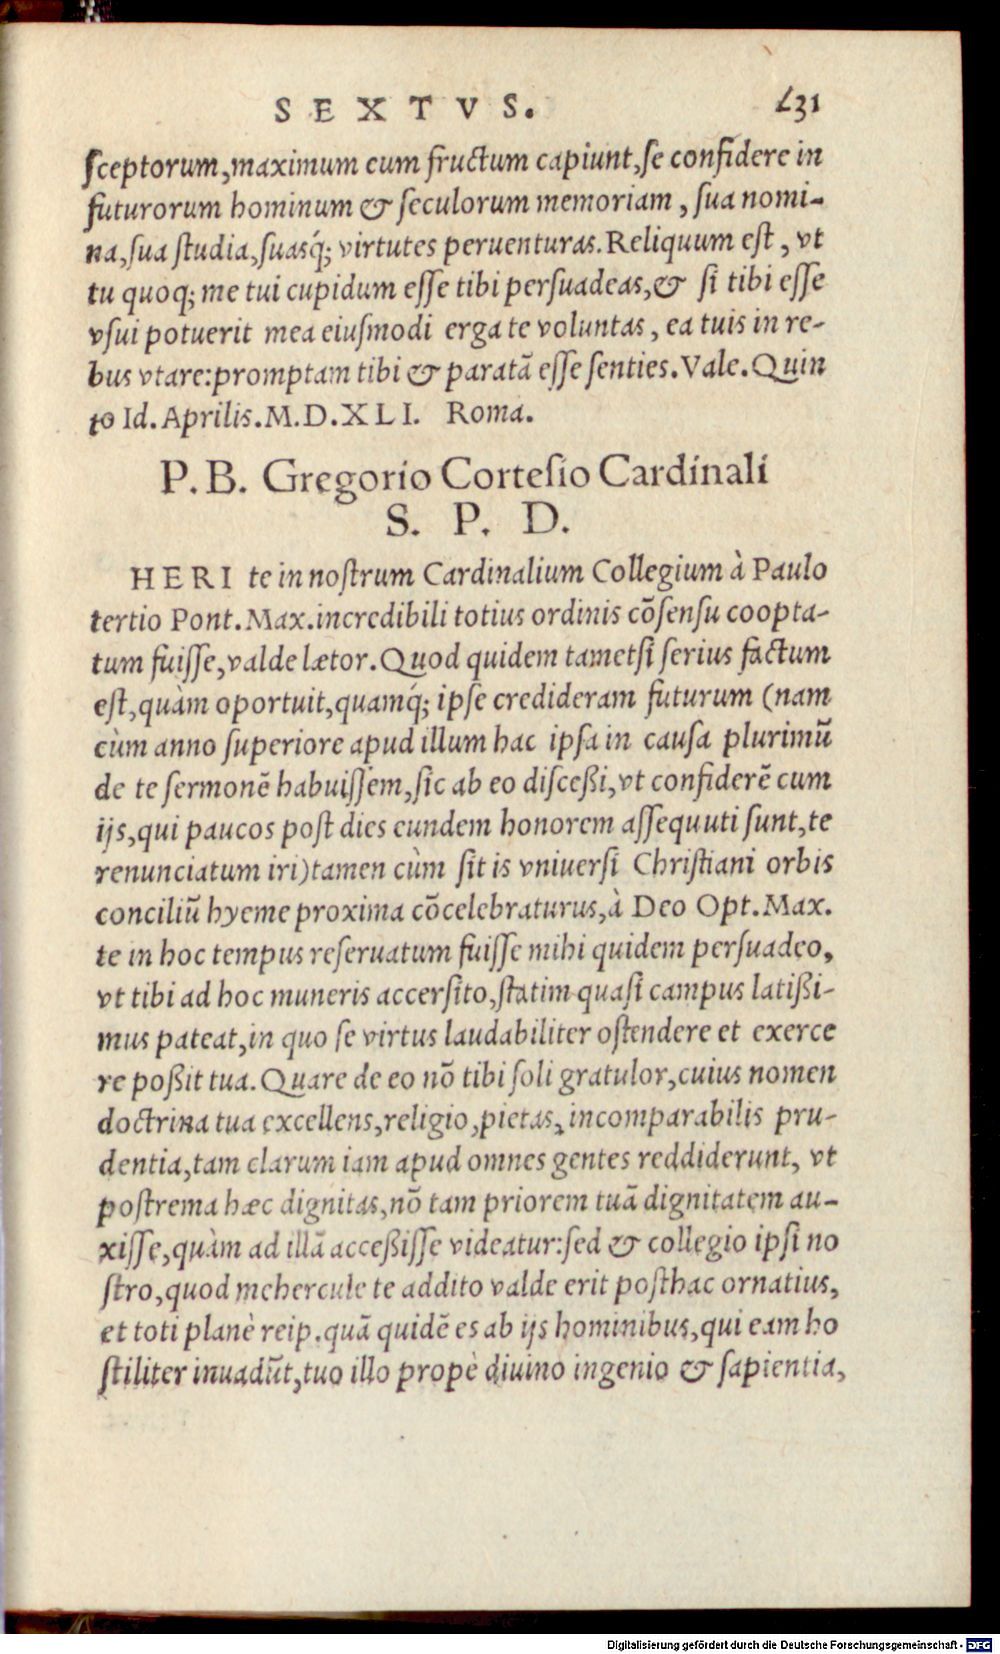 SEXTVS. 231
ſceptorum,maximum cum fructum capiunt,ſe confidere in
futurorum hominum & ſeculorum memoriam, ſua nomi-
na,ſua ſtudia,ſuasq́; virtutes peruenturas.Reliquum eſt, vt
tu quoq; me tui cupidum eſſe tibi perſuadeas,& ſi tibi eſſe
vſui potuerit mea eiuſmodi erga te voluntas, ea tuis in re-
bus vtare:promptam tibi & paratã eſſe ſenties.Vale.Quin
to Id. Aprilis.M.D.XLI. Roma.
P.B. Gregorio Corteſio Cardinali
S. P. D.
HERI te in noſtrum Cardinalium Collegium à Paulo
tertio Pont.Max.incredibili totius ordinis cõſenſu coopta-
tum fuiſſe,valde lætor.Quod quidem tametſi ſerius factum
eſt,quàm oportuit,quamq́; ipſe credideram futurum (nam
cùm anno ſuperiore apud illum hac ipſa in cauſa plurimũ
de te ſermonẽ habuiſſem,ſic ab eo diſceßi,vt confiderẽ cum
ijs,qui paucos poſt dies eundem honorem aſſequuti ſunt,te
renunciatum iri)tamen cùm ſit is vniuerſi Chriſtiani orbis
conciliũ hyeme proxima cõcelebraturus,à Deo Opt.Max.
te in hoc tempus reſeruatum fuiſſe mihi quidem perſuadeo,
vt tibi ad hoc muneris accerſito,ſtatim quaſi campus latißi-
mus pateat,in quo ſe virtus laudabiliter oſtendere et exerce
re poßit tua.Quare de eo nõ tibi ſoli gratulor,cuius nomen
doctrina tua excellens,religio,pietas, incomparabilis pru-
dentia,tam clarum iam apud omnes gentes reddiderunt, vt
poſtrema hæc dignitas,nõ tam priorem tuã dignitatem au-
xiſſe,quàm ad illã acceßiſſe videatur:ſed & collegio ipſi no
ſtro,quod mehercule te addito valde erit poſthac ornatius,
et toti planè reip.quã quidẽ es ab ijs hominibus,qui eam ho
ſtiliter inuadũt,tuo illo propè diuino ingenio & ſapientia,
Digitalisierung gefördert durch die Deutsche Forschungsgemeinschaft - DFG